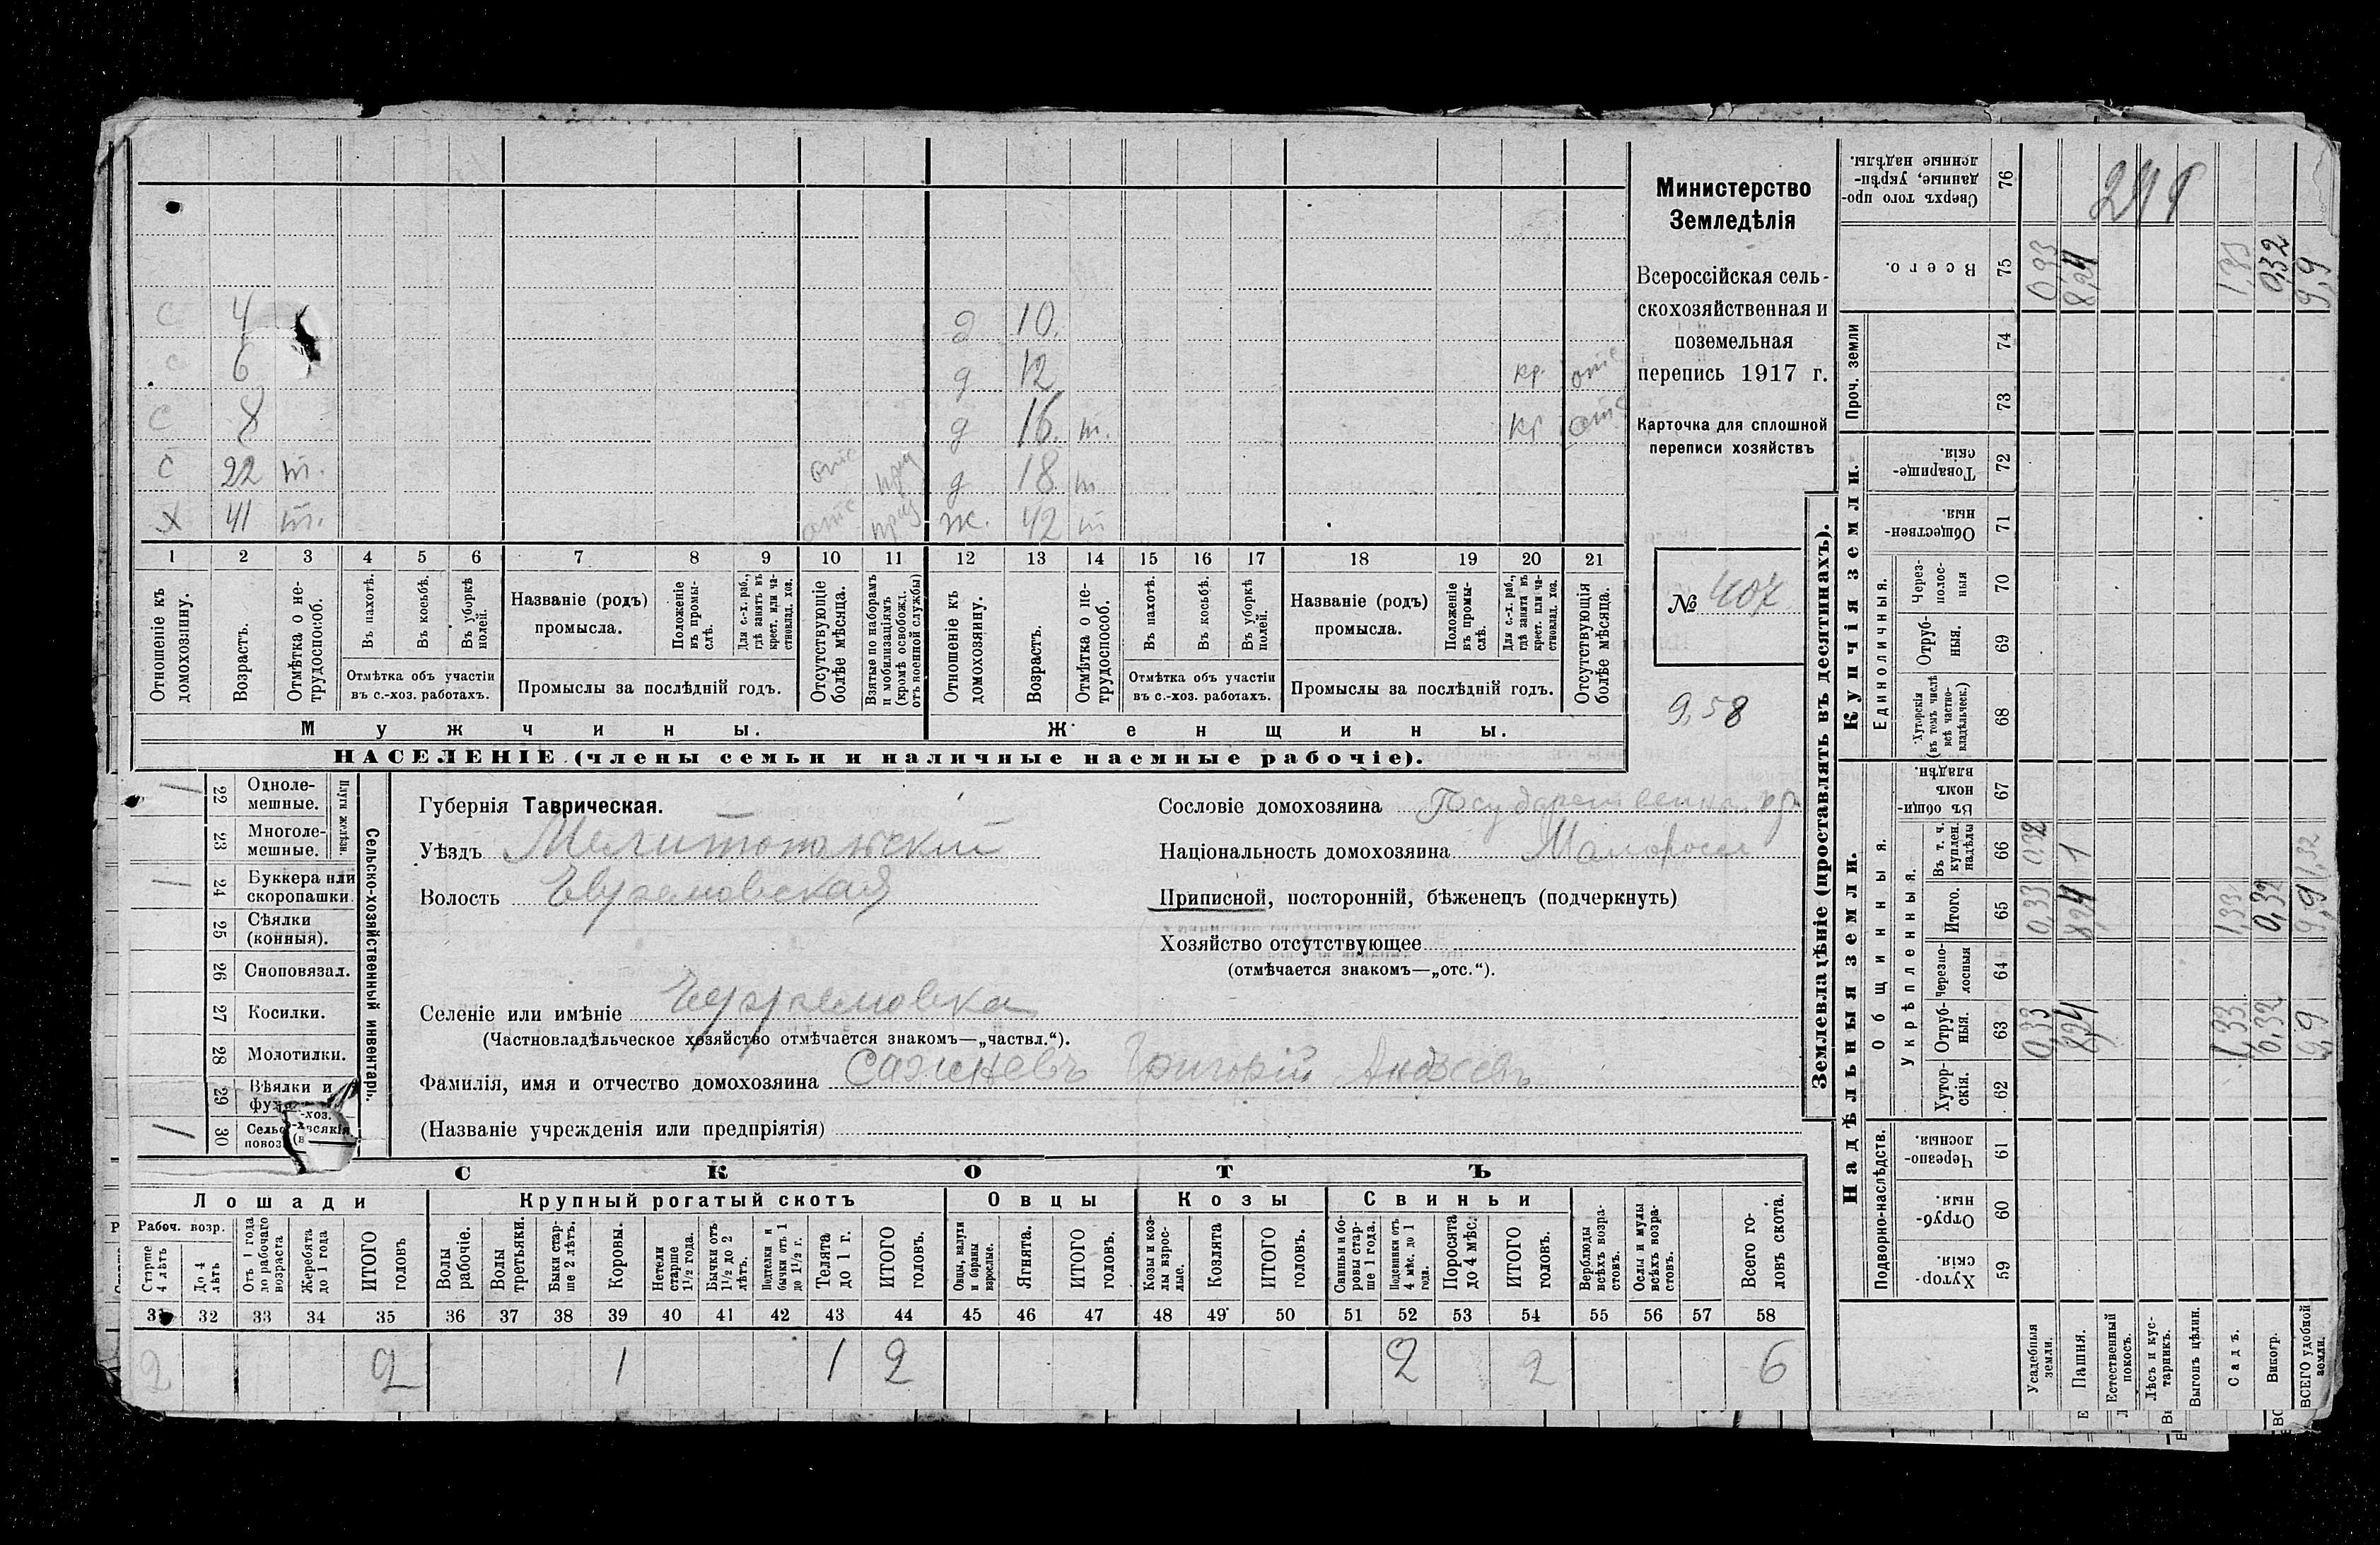 с 4 д 10.
с 6 д 12 кр. отс
с 8 д 16. т. кр отс
с 22 т. отс приз д 18 т
х 41 т. отс приз ж. 42 т
1 2 3 4 5 6 7 8 9 10 11 12 13 14 15 16 17 18 19 20 21
Отношеніе къ домохозяину.
Возрастъ.
Отмѣтка о не-
трудоспособ.
Въ пахотѣ.
Въ косьбѣ.
Въ уборкѣ
полей.
Отмѣтка объ участіи
въ с.-хоз. работахъ.
Названіе (родъ)
промысла.
Положеніе
въ промы-
слѣ.
Для с.-х. раб.,
гдѣ занятъ въ
крест. или ча-
стновлад. хоз.
Промыслы за послѣдній годъ.
Отсутствующіе
болѣе мѣсяца.
Взятые по наборамъ
и мобилизаціямъ
(кромѣ освобожд.
отъ военной службы)
Отношеніе къ
домохозяину.
Возрастъ.
Отмѣтка о не-
трудоспособ.
Въ пахотѣ.
Въ косьбѣ.
Въ уборкѣ
полей.
Отмѣтка объ участіи
въ с.-хоз. работахъ.
Названіе (родъ)
промысла.
Положеніе
въ промы-
слѣ.
Для с.-х. раб.,
гдѣ занята въ
крест. или ча-
стновлад. хоз.
Промыслы за послѣдній годъ.
Отсутствующія
болѣе мѣсяца.
Мужчины. Женщины.
НАСЕЛЕНІЕ (члены семьи и наличные наемные рабочіе).
Министерство
Земледѣлія
Всероссійская сель-
скохозяйственная и
поземельная
перепись 1917 г.
Карточка для сплошной
переписи хозяйствъ
№ 407
9,58
Сельско-хозяйственный инвентарь.
Плуги желѣзн.
22 Одноле-
мешные.
23 Многоле-
мешные.
24 Буккера или
скоропашки.
25 Сѣялки
(конныя).
26 Сноповязал.
27 Косилки.
28 Молотилки.
29 Вѣялки и
30
Губернія Таврическая.
Уѣздъ Мелитопольскій
Волость Ефремовская
Селеніе или имѣніе Ефремовка
(Частновладѣльческое хозяйство отмѣчается знакомъ—„частвл.“).
Фамилія, имя и отчество домохозяина Сажневъ Григорій Андреевъ
(Названіе учрежденія или предпріятія)
Сословіе домохозяина Государственн. кр.
Національность домохозяина Малоросс
Приписной, посторонній, бѣженецъ (подчеркнуть)
Хозяйство отсутствующее
(отмѣчается знакомъ—„отс.“).
СКОТЪ
Лошади Крупный рогатый скотъ Овцы Козы Свиньи
Рабоч. возр.
Старше
4 лѣтъ
До 4
лѣтъ
Отъ 1 года
до рабочаго
возраста
Жеребята
до 1 года
ИТОГО
головъ
Волы
рабочіе.
Волы
третьяки.
Быки стар-
ше 2 лѣтъ.
Коровы.
Нетели
старше
1½ года.
Бычки отъ
1½ до 2
лѣтъ.
Подтелки и
бычки отъ 1
до 1½ г.
Телята
до 1 г.
ИТОГО
головъ.
Овцы, валухи
и бараны
взрослые.
Ягнята.
ИТОГО
головъ.
Козы и коз-
лы взрос-
лые.
Козлята
ИТОГО
головъ.
Свиньи и бо-
ровы стар-
ше 1 года.
Подсвинки отъ
4 мѣс. до 1
года.
Поросята
до 4 мѣс.
ИТОГО
головъ.
Верблюды
всѣхъ возра-
стовъ.
Ослы и мулы
всѣхъ возра-
стовъ.
Всего го-
ловъ скота.
31 32 33 34 35 36 37 38 39 40 41 42 43 44 45 46 47 48 49 50 51 52 53 54 55 56 57 58
2 2 1 1 2 2 2 6
Землевладѣніе (проставлять въ десятинахъ).
Надѣльныя земли. Купчія земли. Проч. земли
Подворно-наслѣдств.
Общинныя.
Укрѣпленныя.
Единоличныя.
Хутор-
скія.
Отруб-
ныя.
Черезпо-
лосныя.
Хутор-
скія.
Отруб-
ныя.
Черезпо-
лосныя
Итого.
Въ т. ч.
куплен.
надѣлы
Въ общи-
номъ
владѣн.
Хуторскія
(въ томъ числѣ
всѣ частно-
владѣльческ.)
Отруб-
ныя.
Через-
полос-
ныя
Обществен-
ныя.
Товарище-
скія.
Всего.
Сверхъ того про-
данные, укрѣп-
ленные надѣлы.
59 60 61 62 63 64 65 66 67 68 69 70 71 72 73 74 75 76
Усадебныя
земли. 0,33 0,33 0,32 0,33
Пашня. 8,24 8,24 1 8,24
Естественный
покосъ.
Лѣсъ и кус-
тарникъ.
Выгонъ цѣлин.
Садъ. 1,33 1,33 1,33
Виногр. 0,32 0,32 0,32
ВСЕГО удобной
земли. 9,9 9,9 1,32 9,9